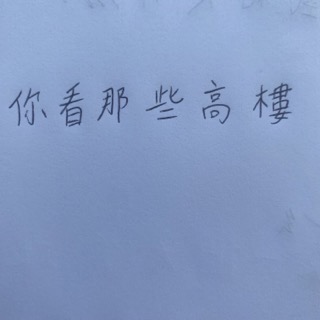 你看那些高樓